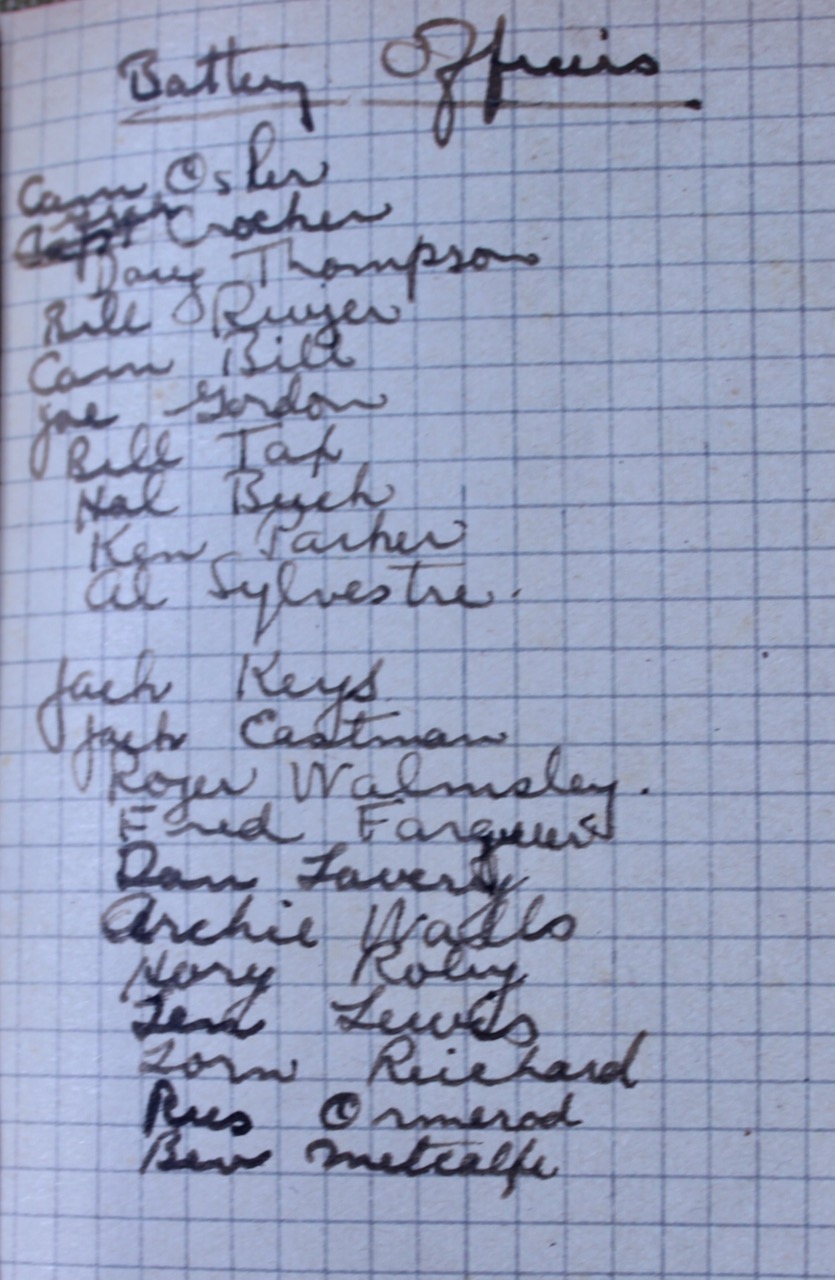 Battery Officers
Cam Osler
Crocker
Doug Thompson
Bill Ruiger
Cam Bill
Joe Gordon
Bill Tax
Hal Buck
Ken Parker
Al Sylvestre.
Jack Keys
Jack Eastman
Roger Walmsley.
Fred Farquar
Dan Laverty
Archie Walls
Hory Roby
Len Lewis
Lorn Reichard
Rus Ormerod
Bev Metcalfe